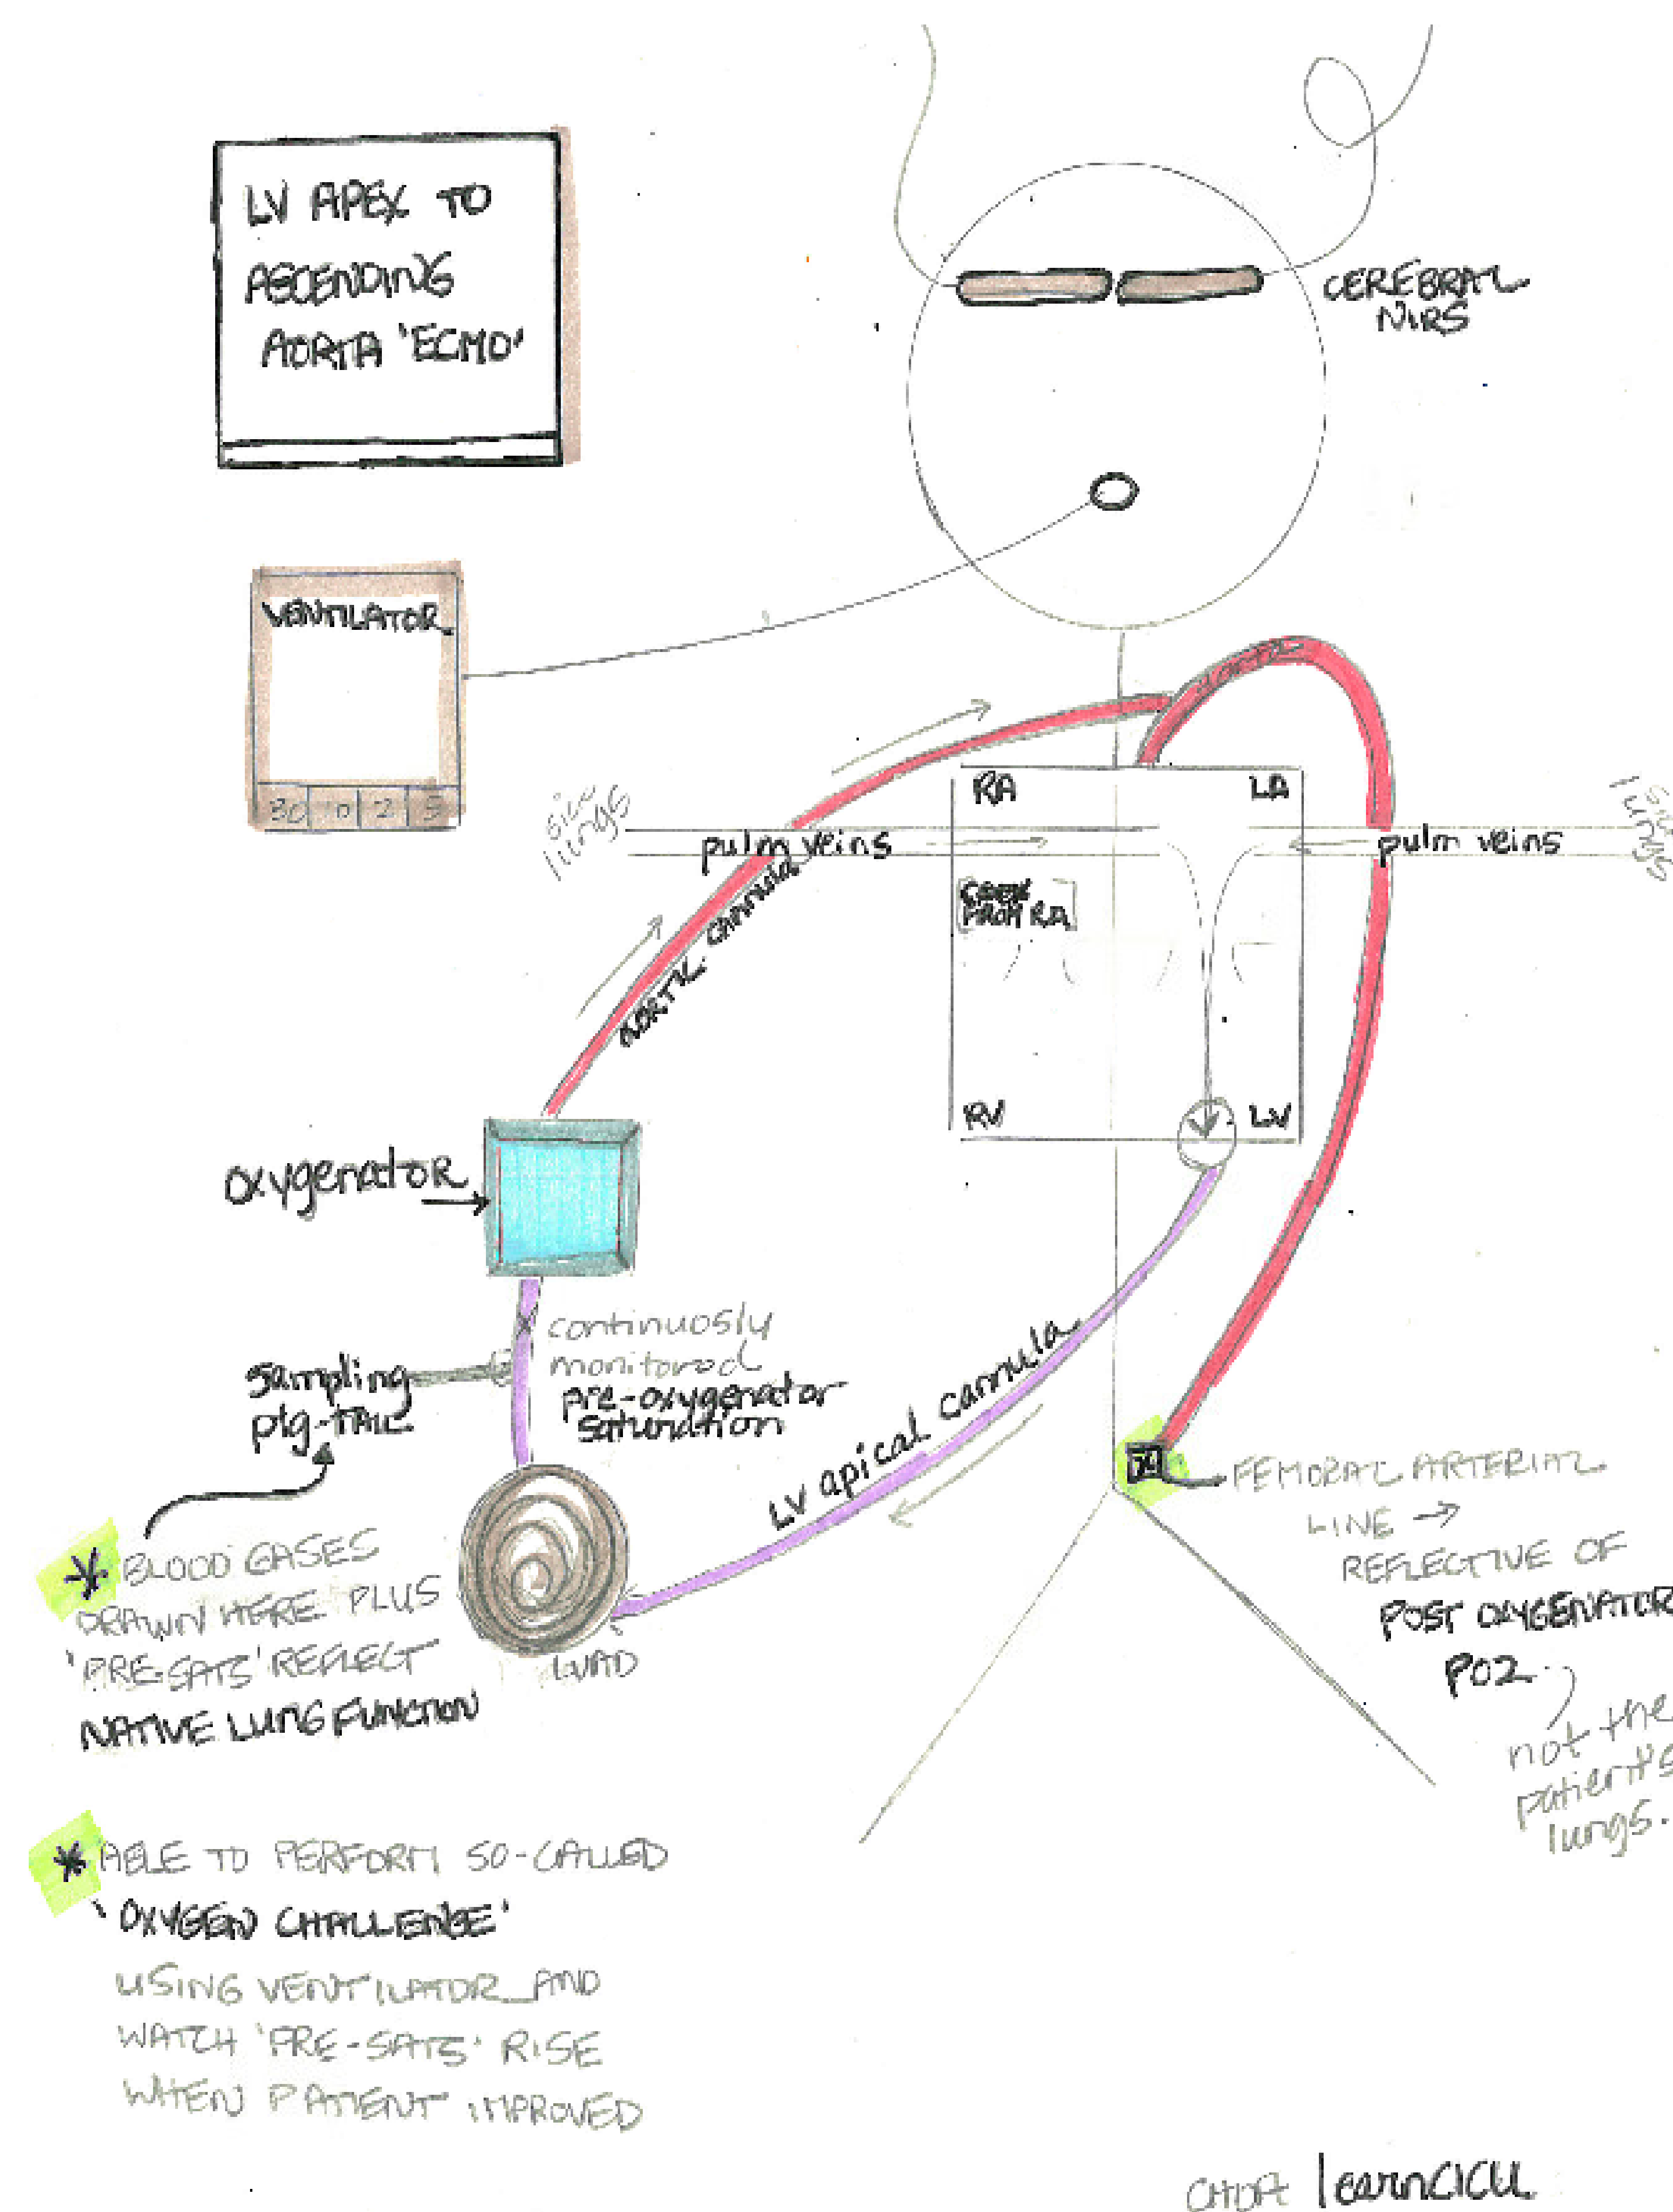 LV APEX TO
ASCENDING
AORTA 'ECMO'
CEREBRAL
NIRS
VENTILATOR
30 10 2 5
AORTA
sick
lungs
RA
LA
pulm veins
pulm veins
lungs
FROM RA
AORTIC CANNULA
RV
LV
oxygenator
continuosly
monitored
pre-oxygenator
saturation
sampling
pig-TAIL
LV apical cannula
LVAD
* BLOOD GASES
DRAWN HERE PLUS
'PRE-SATS' REFLECT
NATIVE LUNG FUNCTION
x
FEMORAL ARTERIAL
LINE →
REFLECTIVE OF
POST OXYGENATOR
PO2
not the
patient's
lungs.
* ABLE TO PERFORM SO-CALLED
'OXYGEN CHALLENGE'
USING VENTILATOR AND
WATCH 'PRE-SATS' RISE
WHEN PATIENT IMPROVED
learnCICU